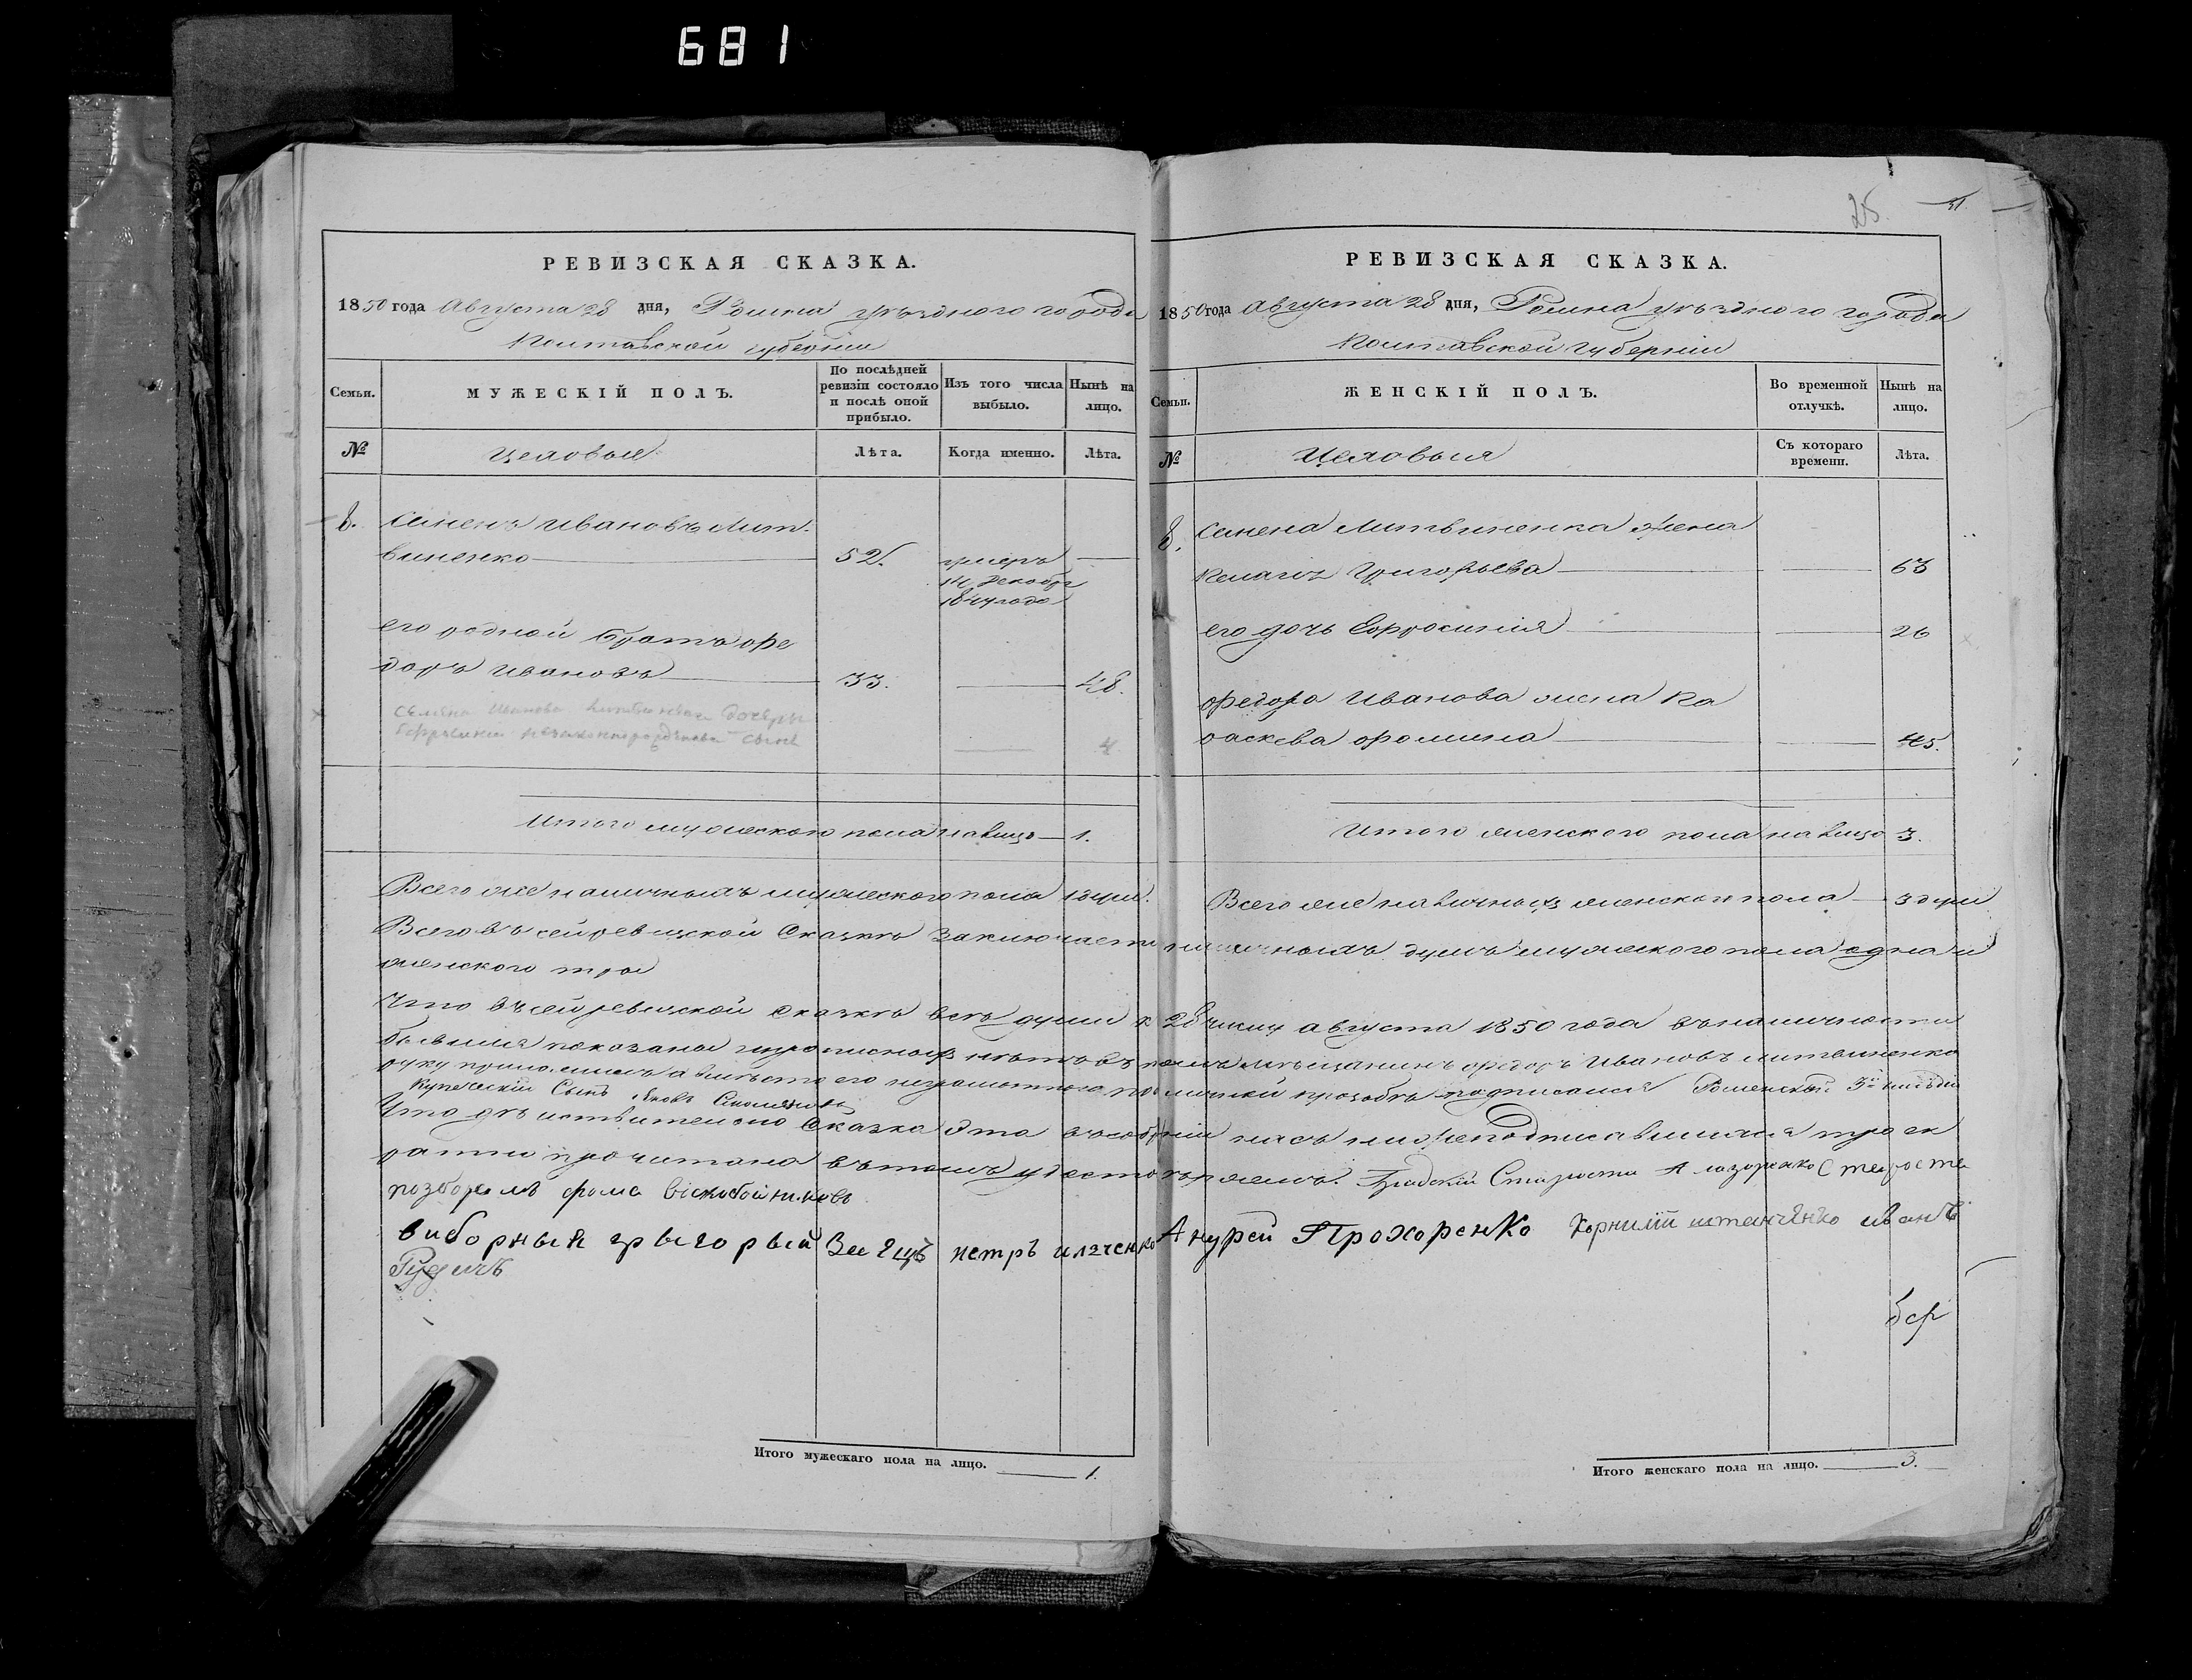 681
25
РЕВИЗСКАЯ СКАЗКА.
1850 года Августа 28 дня, Ромна уѣзднаго города
Полтавской губерніи
Семьи.
МУЖЕСКІЙ ПОЛЪ.
По послѣдней ревизіи состояло и послѣ оной прибыло.
Изъ того числа выбыло.
Нынѣ на лицо.
№
Цеховые
Лѣта.
Когда именно.
Лѣта.
8. Семенъ Ивановъ Лит-
виненко 52. умеръ
14 декабр
1844 года
его родной братъ Фе
доръ Ивановъ 33. 48.
Семена Иванова Литвиненка дочери
Ефросиніи незаконнорожденный сынъ
4
Итого мужескаго пола налицо 1.
Всего же наличныхъ мужескаго пола 1 душ.
РЕВИЗСКАЯ СКАЗКА.
1850 года Августа 28 дня, Ромна уѣзднаго города
Полтавской губерніи
Семьи.
ЖЕНСКІЙ ПОЛЪ.
Во временной отлучкѣ.
Нынѣ на лицо.
№
Цеховыя
Съ котораго времени.
Лѣта.
8. Семена Литвиненка жена
Пелагея Григорьева 63
его дочь Ефросинія 26
Федора Иванова жена Па
раскева Фомина 45.
Итого женского пола на лицо 3.
Всего же наличныхъ женского пола 3 души
Всего въ сей ревизской сказкѣ заключается наличныхъ душъ мужеского пола одна и
женского три
Что въ сей ревизской сказкѣ всѣ души к 28 числу августа 1850 года въ наличности
бывшия показаны и прописныхъ нѣтъ въ томъ мѣщанинъ Федоръ Ивановъ Литвиненко
руку приложилъ а вмѣсто его неграмотного по личной прозбѣ подписался Роменский 3й гильдии
купеческій сынъ Яковъ
Что дѣиствительно сказка эта въ собраніи насъ нижеподписавшихся трое к
ратно прочитана въ томъ удостовѣряемъ. Градскій Староста А Лазоренко Староста
Фома
виборный грыгорый Заяцъ петръ Андрей Прохоренко Корнилій иванъ
Рудичъ
Итого мужескаго пола на лицо. 1.
Итого женскаго пола на лицо. 3.